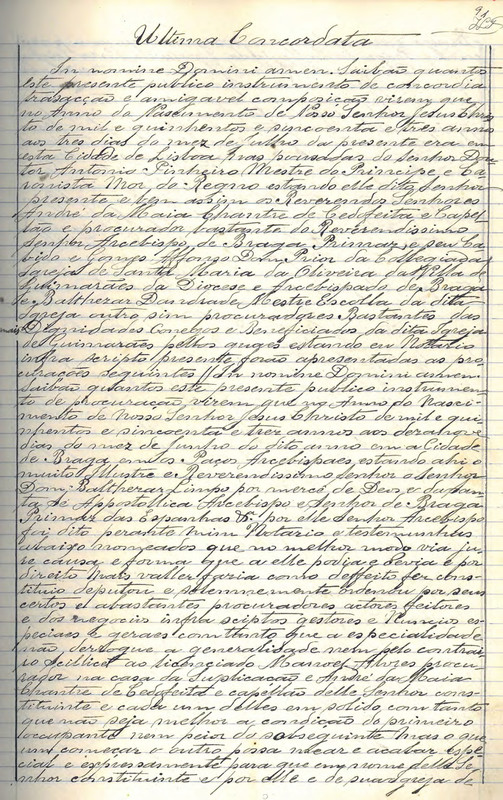 Ultima Concordata
In nomine Domini amen. Saibão quantos
este presente publico instrumento de concordia
transacção e amigavel composição virem que
no Anno do Nascimento de Nosso Senhor Jesus Chris
to de mil e quinhentos e sincoenta e tres annos
aos tres dias do mez de Julho da presente era em
esta Cidade de Lisboa nas pousadas do Senhor Dou
tor Antonio Pinheiro Mestre do Principe e Ca
ronista Mor do Reyno estando elle dito Senhor
presente e bem assim os Reverendos Senhores
André da Maia Chantre de Cedofeita e Capel
lão e procurador bastante do Reverendissimo
Senhor Arcebispo de Braga Primaz, e seu Ca
bido e Gomes Affonso Dom Prior da Collegiada
Igreja de Santa Maria da Oliveira da Villa de
Guimarães da Diocese e Arcebispado de Braga
e Balthezar Dandrade Mestre Escolla da dita
Igreja outro sim procuradores Bastantes das
mais Dignidades Conegos e Beneficiados da dita Igreja
de Guimarães pellos quaes estando eu Notario
infra scripto presente forão apresentadas as pro
curações seguintes // In nomine Domini amen
Saibão quantos este presente publico instrumen
to de procuração virem que no Anno do Nasci
mento de Nosso Senhor Jesus Christo de mil e qui
nhentos e sincoenta e trez annos aos dezanove
dias do mez de Junho do dito anno em a Cidade
de Braga em os Paços Arcebispaes, estando ahi o
muito Illustre e Reverendissimo Senhor o Senhor
Dom Balthezar Limpo por mercê de Deos e da San
ta Sé Appostolica Arcebispo e Senhor de Braga
Primaz das Espanhas & por elle Senhor Arcebispo
foi dito perante mim Notario e testemunhas
abaixo nomeados que no melhor modo via ju
re causa e forma que a elle podia e devia e por
direito mais valler fazia como deffeito fez cons
tituio deputou e solemnemente ordenou por seus
certos e abastantes procuradores actores feitores
e dos negocios infra sciptos gestores e Nuncios es
peciaes e geraes comtanto que a especialidade
não derrogue a generalidade nem pello contra
rio scilicet ao licenciado Manoel Alvres procu
rador na casa da Suplicação e André da Maia
Chantre de Cedofeita e capellão delle Senhor cons
tituinte e cada um delles em solido, com tanto
que não seja melhor a condição do primeiro
occupante nem peior do subsequente mas o que
um começar o outro possa mear e acabar espe
cial e expressamente para que em nome delle Se
nhor constituinte e por elle e de sua Igreja de